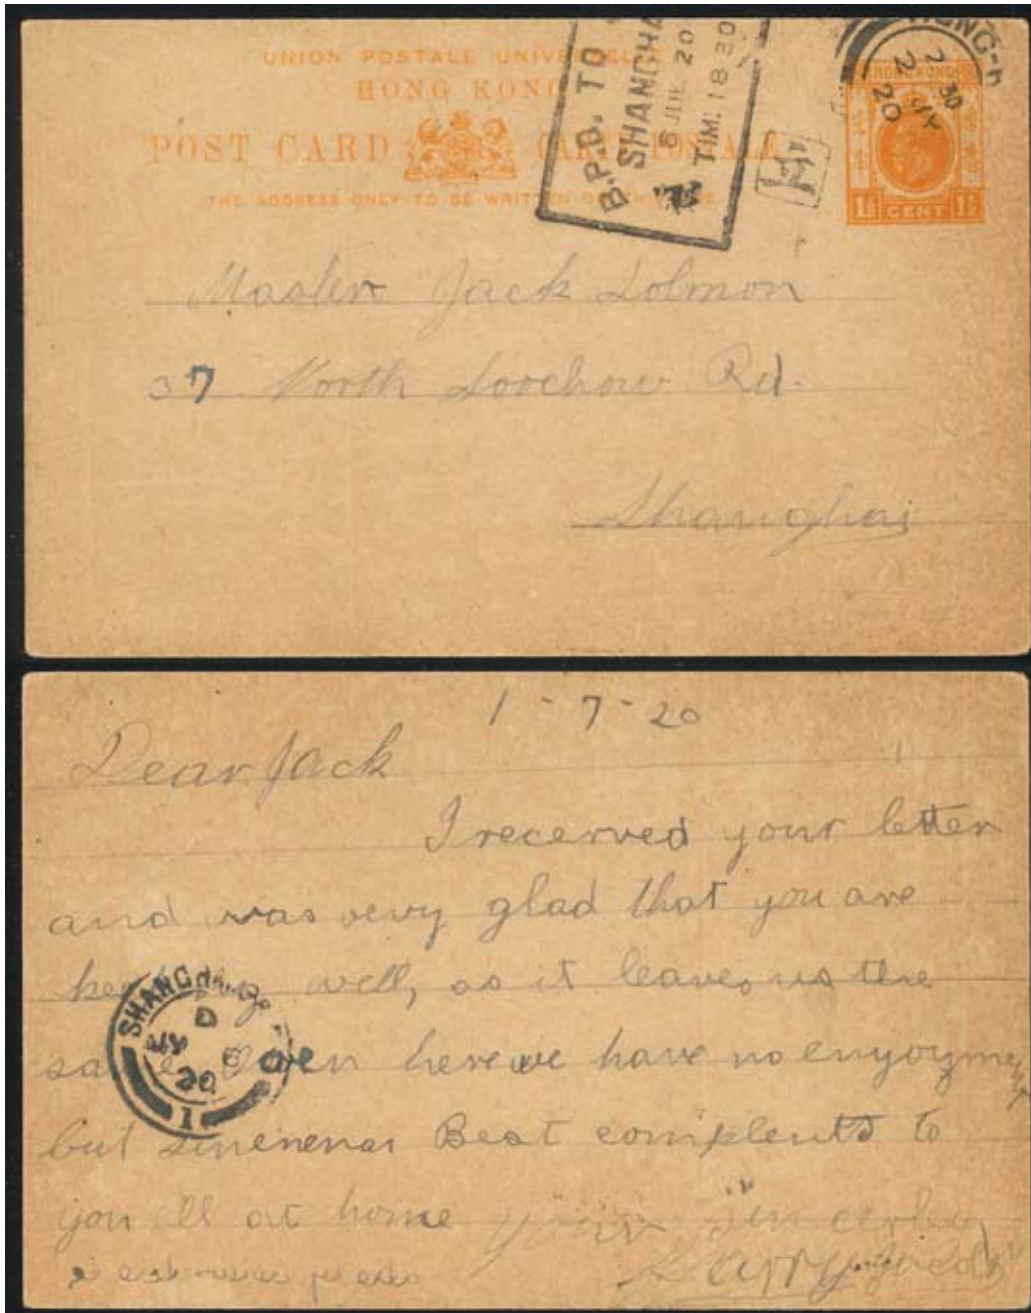 UNION POSTALE UNIVERSELLE
HONG KONG
POST CARD CARTE POSTALE
THE ADDRESS ONLY TO BE WRITTEN ON THIS SIDE
B.P.O. TO
SHANGHA
6 JUL 20
TIM: 18 30
HONG-K
2 30
2 JY
20
HONG KONG
1½ CENT 1½
Master Jack Solmon
37 North Soochow Rd.
Shanghai
1-7-20
Dear Jack
I received your letter
and was very glad that you are
well, as it leaves us the
Over here we have no enyoyment
but Best complents to
you all at home your sincerley
Harry
SHANGHAI
D
JY 6
20
1